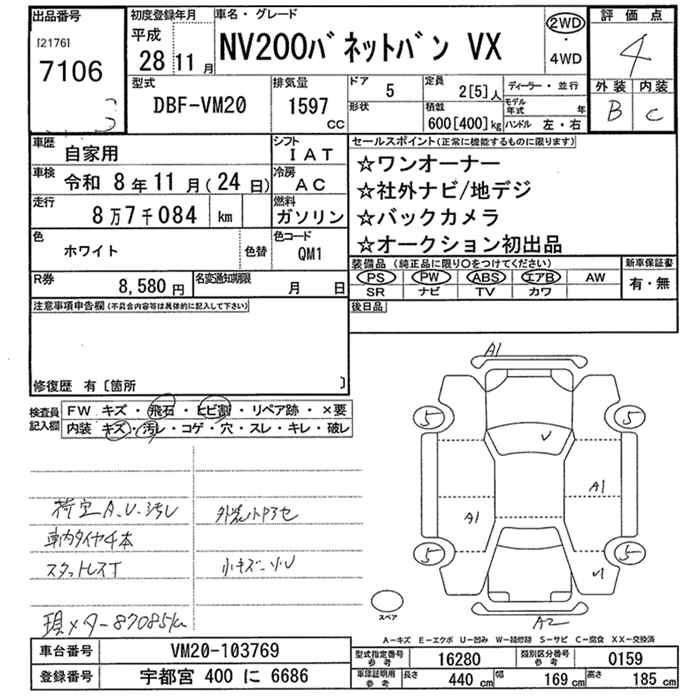 出品番号
[2176]
7106
初度登録年月
平成
28年11月
車名・グレード
NV200バネットバン VX
2WD
・
4WD
評価点
4
外装 内装
B C
型式
DBF-VM20
排気量
1597
cc
ドア
5
形状
定員
2[5]人
積載
600[400]kg
ディーラー・並行
モデル年式 年
ハンドル 左・右
車歴
自家用
シフト
IAT
車検
令和 8年11月(24日)
冷房
AC
走行
8万7千084 km
燃料
ガソリン
色
ホワイト
色替
色コード
QM1
R券
8,580円
名変通知期限
月 日
セールスポイント(正常に機能するものに限ります)
☆ワンオーナー
☆社外ナビ/地デジ
☆バックカメラ
☆オークション初出品
装備品 (純正品に限り○をつけてください)
PS PW ABS エアB AW
SR ナビ TV カワ
新車保証書
有・無
後日品
注意事項申告欄(不具合内容等は具体的に記入して下さい)
修復歴 有 [箇所 ]
検査員記入欄
FW キズ・飛石・ヒビ割・リペア跡・×要
内装 キズ・汚レ・コゲ・穴・スレ・キレ・破レ
荷室A.U.汚レ
車内タイヤ4本
スタットレスT
現メター87085km
小キズ.小U
A1
5
5
U
A1
A1
5
5
U
A2
スペア
A-キズ E-エクボ U-凹み W-補修跡 S-サビ C-腐食 XX-交換済
車台番号
VM20-103769
登録番号
宇都宮 400 に 6686
型式指定番号
参考
16280
類別区分番号
参考
0159
車庫証明用
参考
長さ 440 cm
幅 169 cm
高さ 185 cm